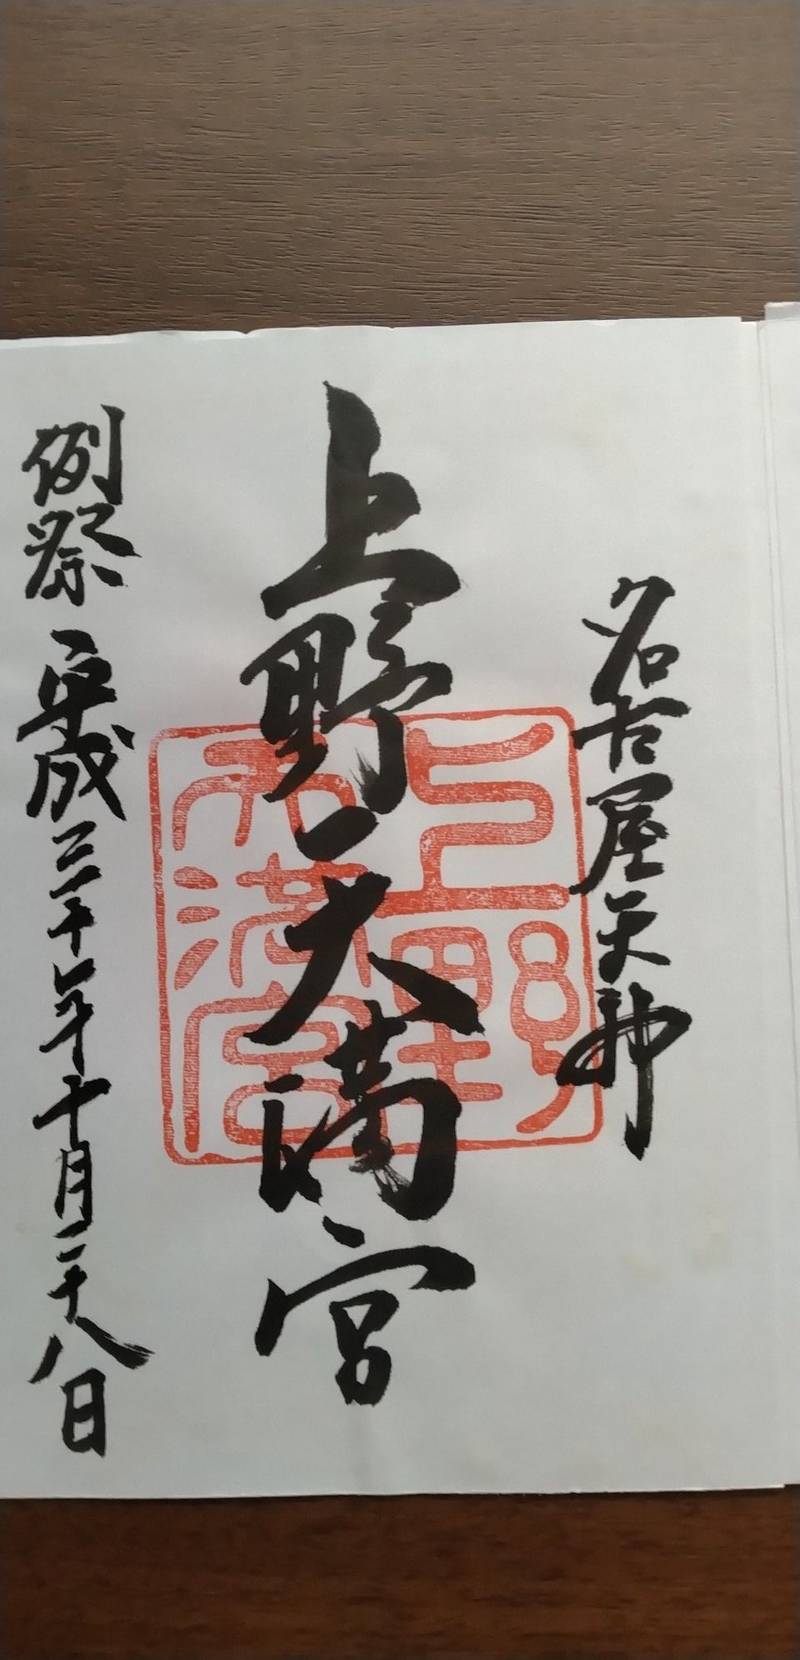 名古屋天神
上野天満宮
上野
天満宮
例祭 平成三十年十月二十八日